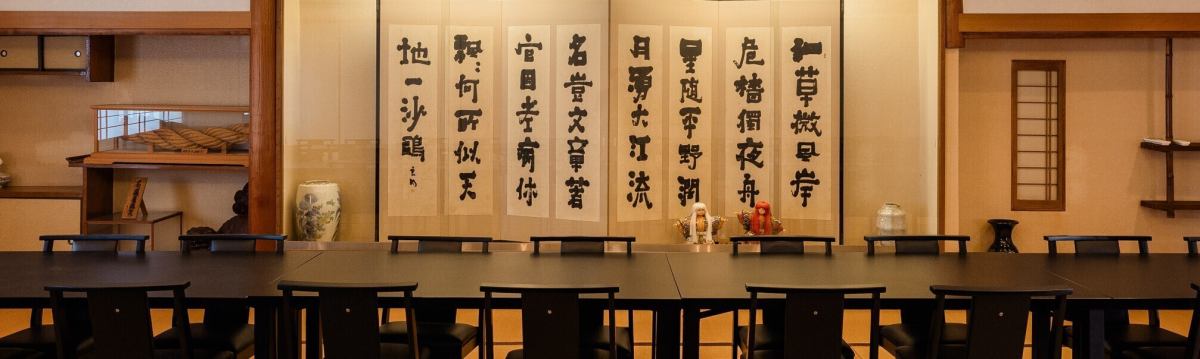 細草微風岸
危檣獨夜舟
星随平野濶
月湧大江流
名豈文章著
官因老病休
飄〻何所似天
地一沙鷗